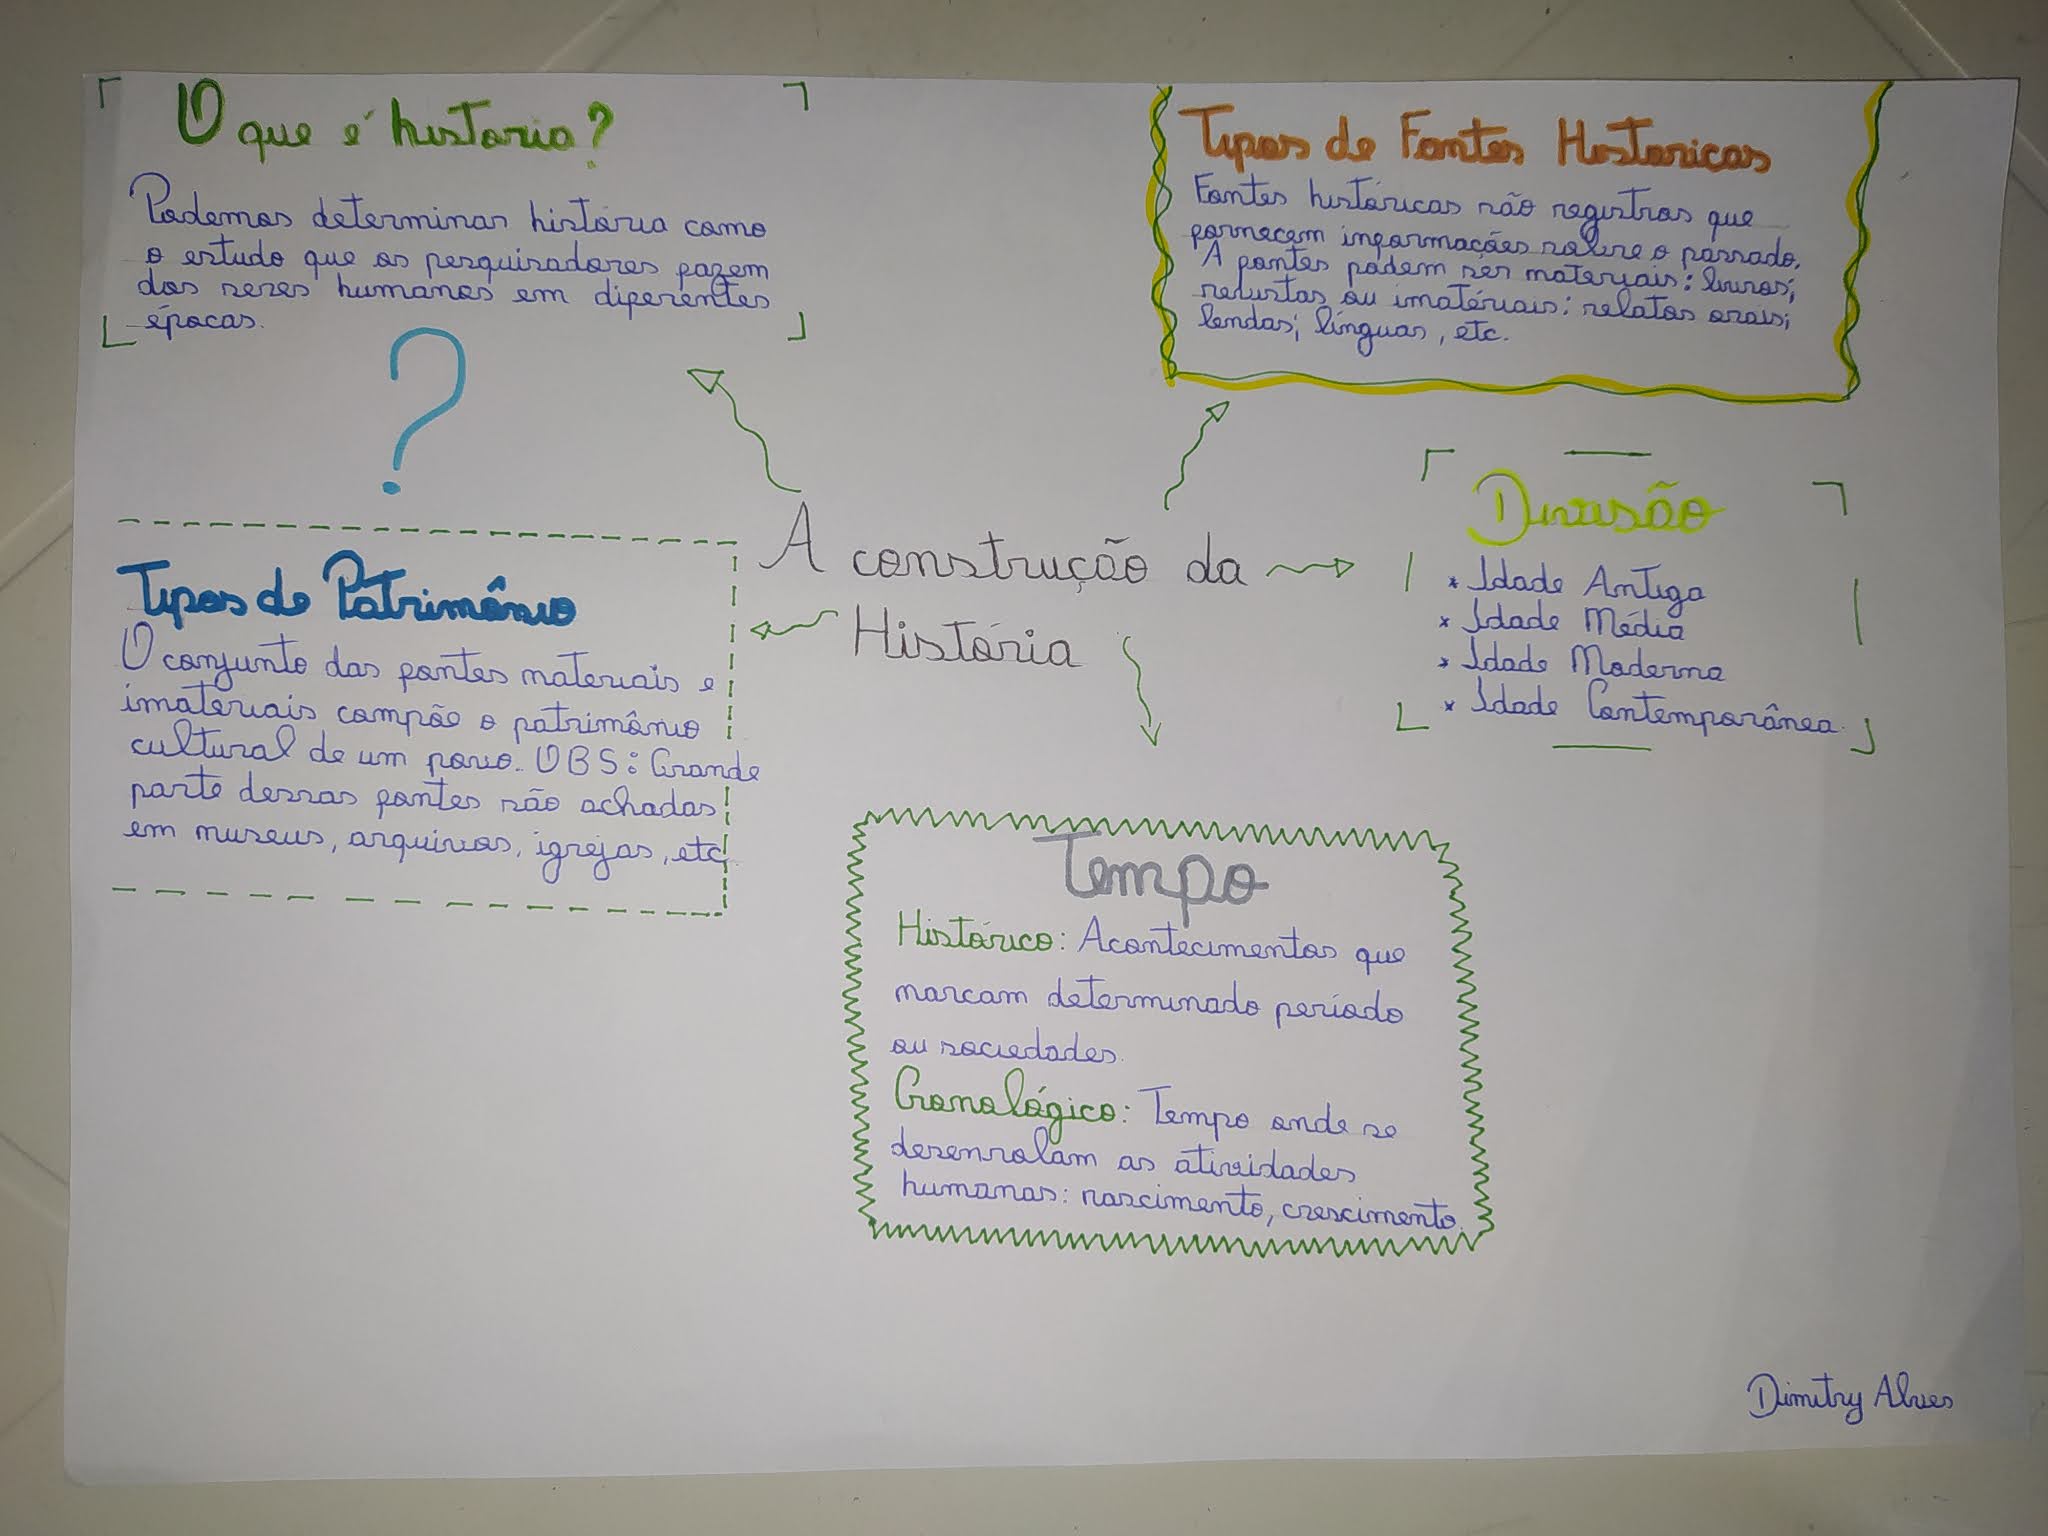 O que é história?
Podemos determinar história como
o estudo que os pesquisadores fazem
dos seres humanos em diferentes
épocas.
?
Tipos de Fontes Historicas
Fontes históricas são registros que
fornecem informações sobre o passado.
A fontes podem ser materiais: livros;
revistas ou imatériais: relatos orais;
lendas; línguas, etc.
A construção da
História
Divisão
* Idade Antiga
* Idade Média
* Idade Moderna
* Idade Contemporânea.
Tipos de Patrimônio
O conjunto das fontes materiais e
imateriais compõe o patrimônio
cultural de um povo. OBS: Grande
parte dessas fontes são achadas
em museus, arquivos, igrejas, etc.
Tempo
Histórico: Acontecimentos que
marcam determinado período
ou sociedades.
Cronológico: Tempo onde se
desenrolam as atividades
humanas: nascimento, crescimento.
Dimitry Alves